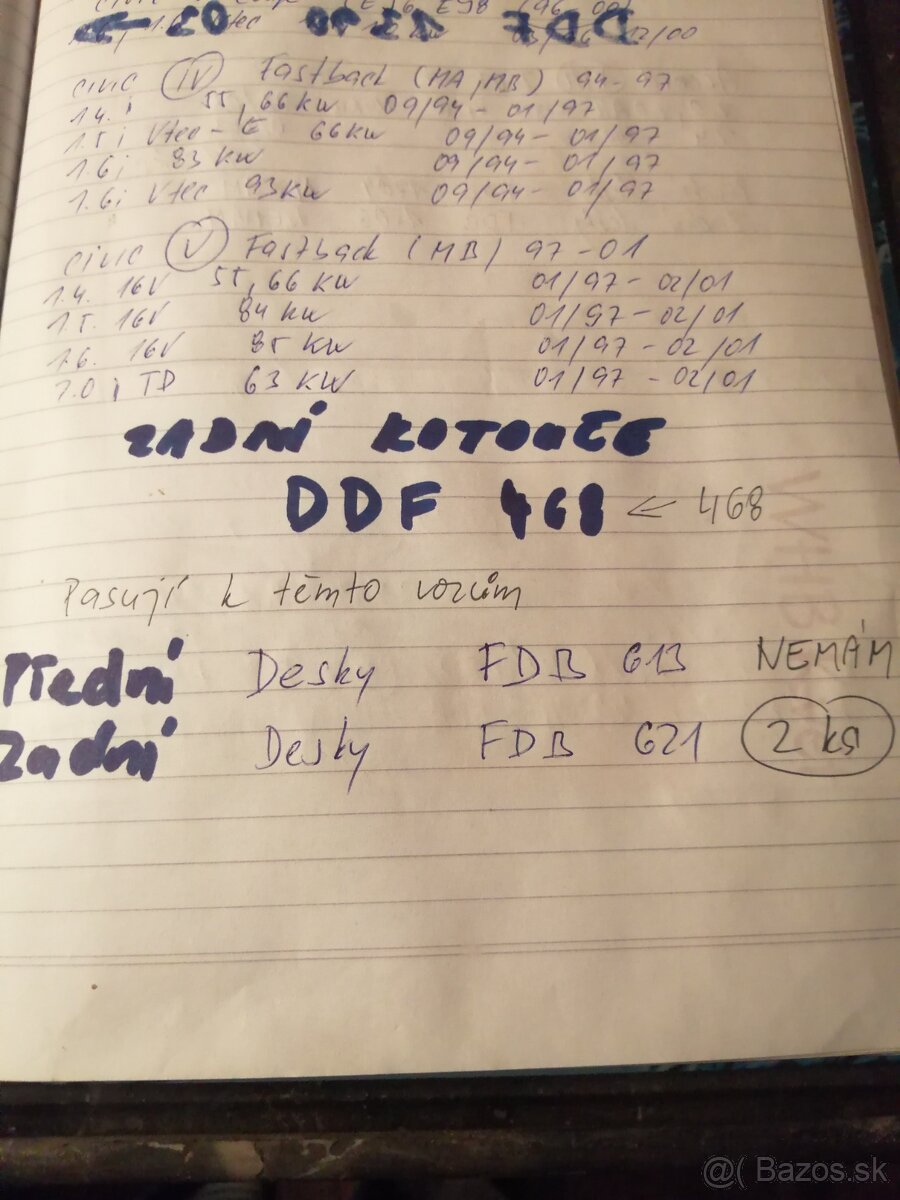 civic IV Fastback (MA, MB) 94-97
1.4 i 55, 66 kw 09/94 - 01/97
1.5 i Vtec-E 66 kw 09/94 - 01/97
1.6 i 83 kw 09/94 - 01/97
1.6 i Vtec 93 kw 09/94 - 01/97
civic V Fastback (MB) 97-01
1.4. 16V 55, 66 kw 01/97 - 02/01
1.5. 16V 84 kw 01/97 - 02/01
1.6. 16V 85 kw 01/97 - 02/01
2.0 i TD 63 kw 01/97 - 02/01
ZADNÍ KOTOUČE
DDF 468 ← 468
Pasují k těmto vozům
Přední Desky FDB 613 NEMÁM
Zadní Desky FDB 621 2 ks
@( Bazos.sk